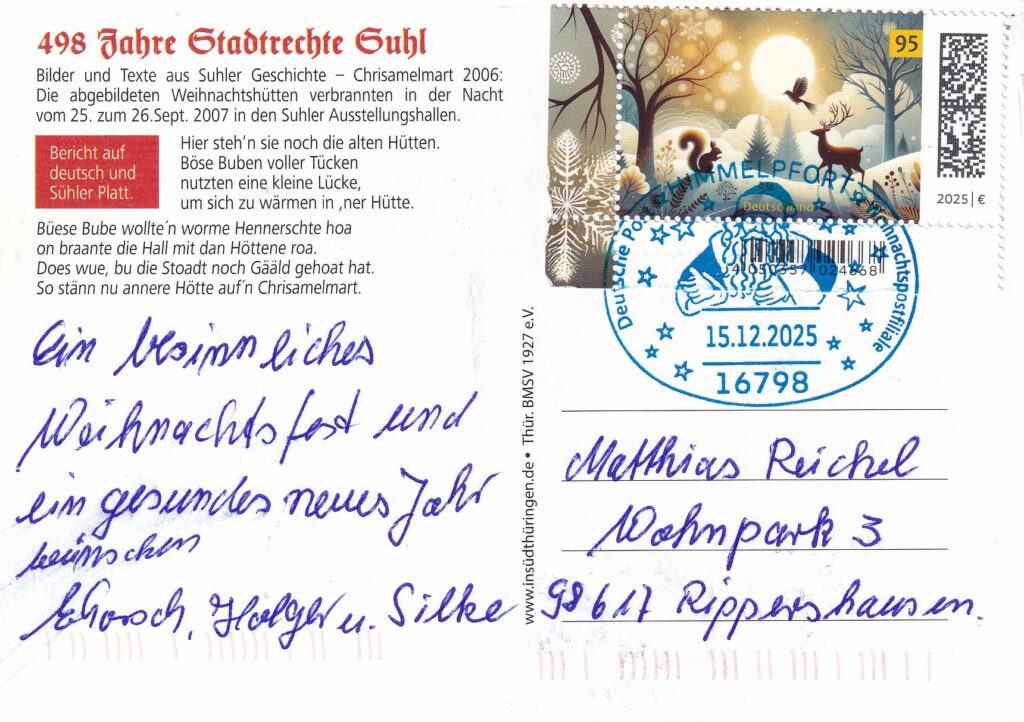 498 Jahre Stadtrechte Suhl
Bilder und Texte aus Suhler Geschichte – Chrisamelmart 2006:
Die abgebildeten Weihnachtshütten verbrannten in der Nacht
vom 25. zum 26.Sept. 2007 in den Suhler Ausstellungshallen.
Bericht auf
deutsch und
Sühler Platt.
Hier steh'n sie noch die alten Hütten.
Böse Buben voller Tücken
nutzten eine kleine Lücke,
um sich zu wärmen in ,ner Hütte.
Büese Bube wollte´n worme Hennerschte hoa
on braante die Hall mit dan Höttene roa.
Does wue, bu die Stoadt noch Gääld gehoat hat.
So stänn nu annere Hötte auf'n Chrisamelmart.
Ein besinnliches
Weihnachtsfest und
ein gesundes neues Jahr
wünschen
Holger u. Silke
www.insüdthüringen.de • Thür. BMSV 1927 e.V.
95
Deutschland
2025 | €
HIMMELPFORT
Deutsche Po
hnachtspostfiliale
4 050357 024868
15.12.2025
16798
Matthias Reichel
Wohnpark 3
98617 Rippershausen.